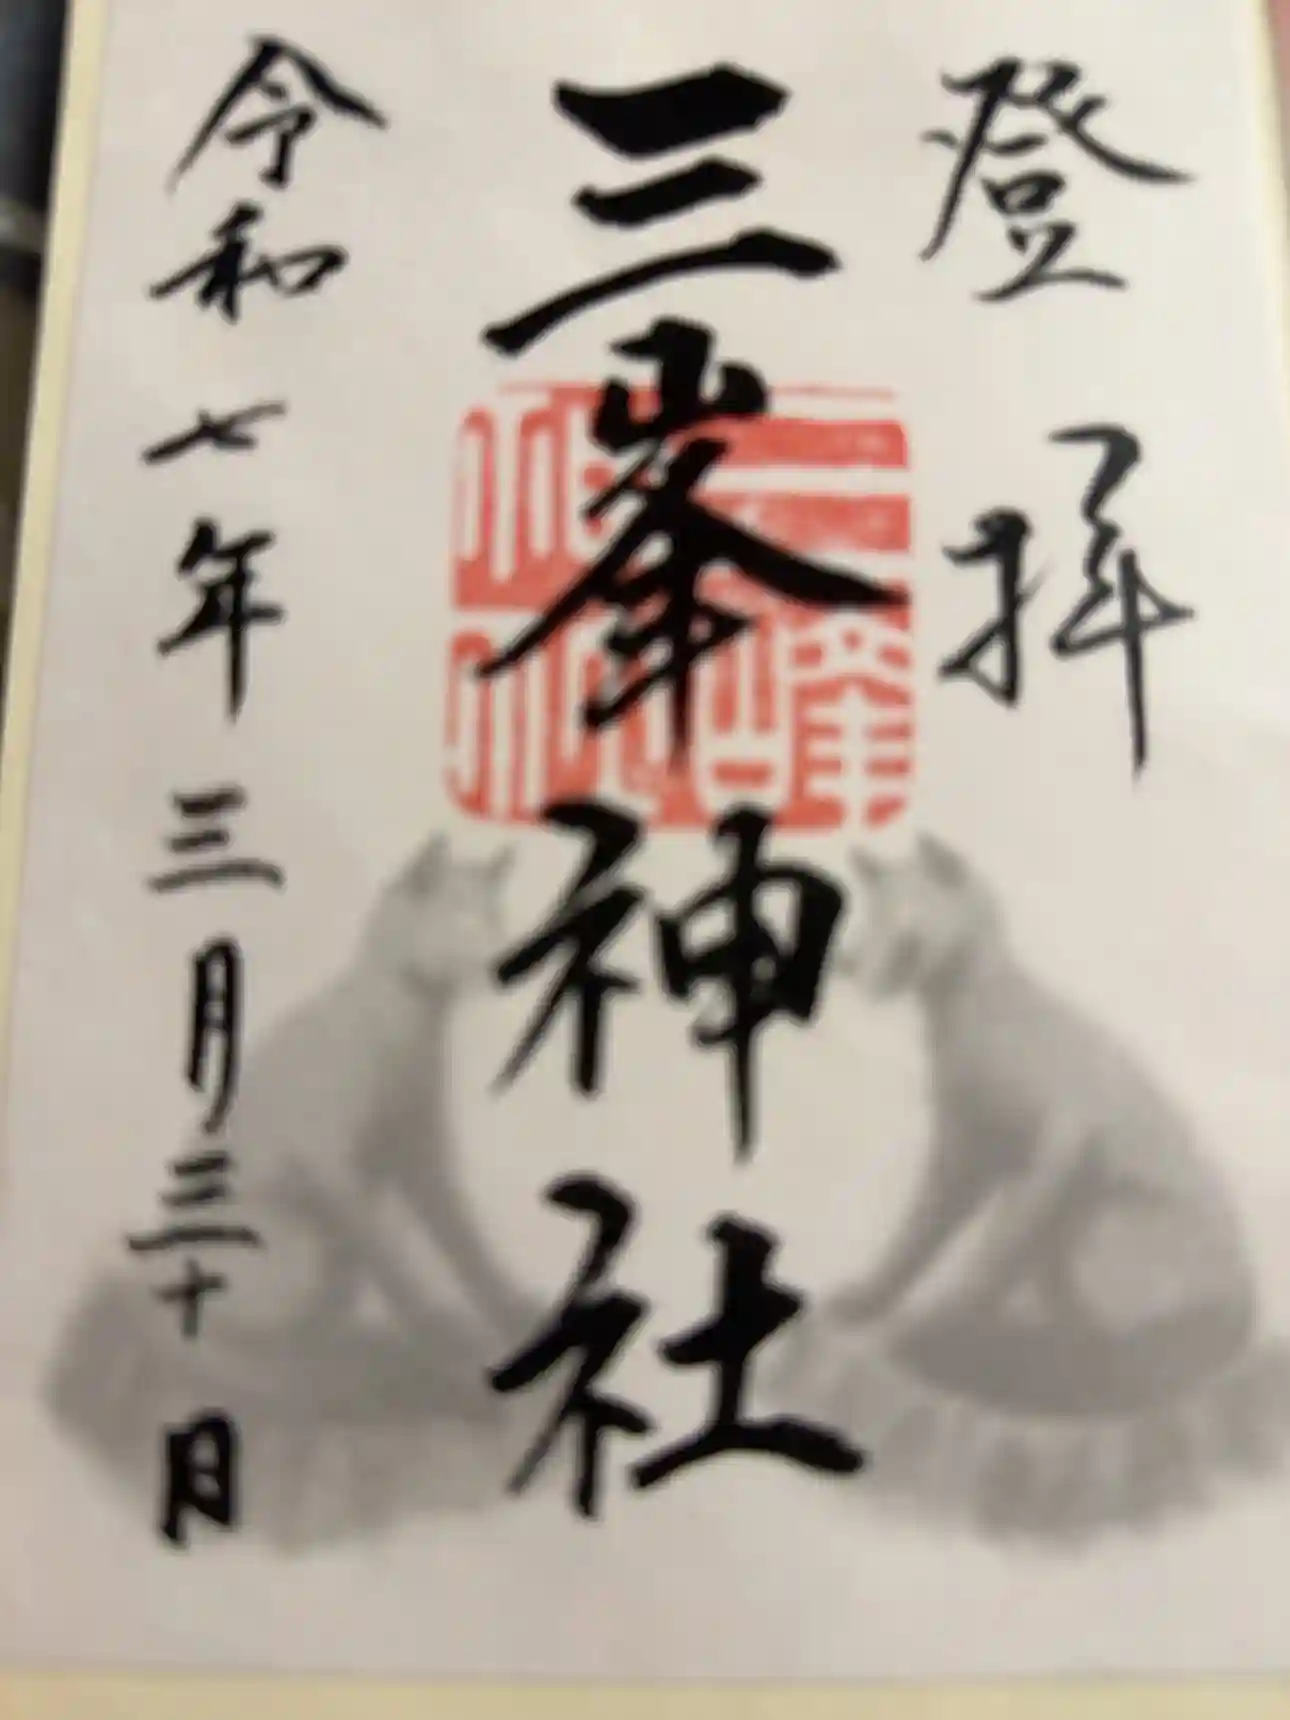 登拝
三峯神社
令和七年三月三十日